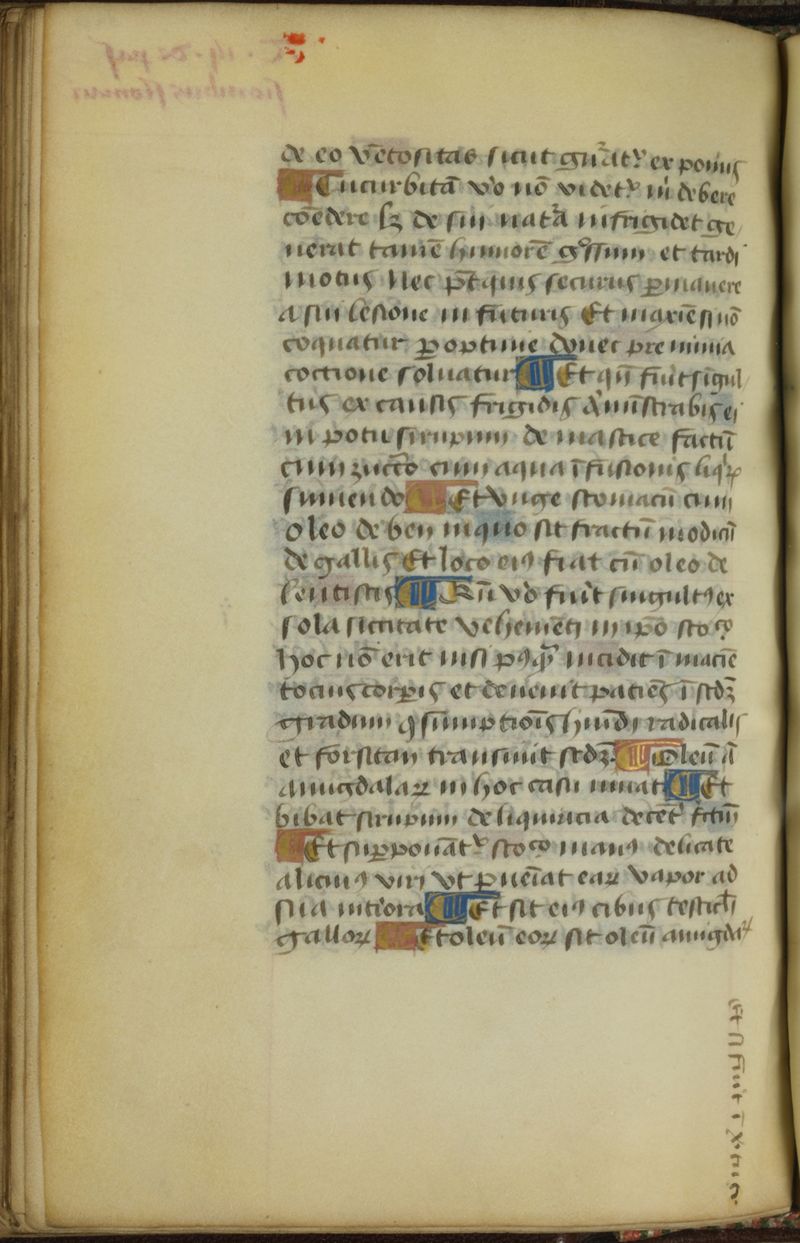 de eo vētositas sicut gn̄at᷑ ex pomis
Cucurbitā v̊o nō videt᷑ m̄ debere
cōedere sꝫ de sui nat̄a infrigidet ge
nerat tamē humorē g̊ssum et tardi
motus Nec pt̄ quis securus ꝑmanere
a sui lesione in futuris Et maxīe si nō
coquatur ꝑoptime donec pre nimia
coctione soluatur Et qn̄ fiūt singul
tus ex causis frigidis admīstrabis ei
in potu sirupum de mastice factū
cum zuccō cum aqua īfusionis
sumendo Et vnge stomacū cum
oleo de ben in quo sit fractū modicū
de gallis Et loco eiꝰ fiat cū oleo de
lentistis Qn̄ v̊o fiūt singultꝰ ex
sola siccitate vehemēti in ip̄o sto
hoc nō erit nisi incidit ī macīe
totius corꝑis et deuenit patiēs ī scd̄ꝫ
gradum ꝯsumptiois humidi radicalis
et forsitan transiuit scdꝫ Oleū ā
amigdalaꝝ in hoc casu iuuat Et
bibat sirupum de liquiricia
Et supponāt᷑ manꝰ delicate
alicuiꝰ viri vt ꝑueīat eaꝝ vapor ad
sua intiora Et sit eiꝰ cibus testicl̄i
galloꝝ Et oleū eoꝝ sit oleū amigdaꝝ